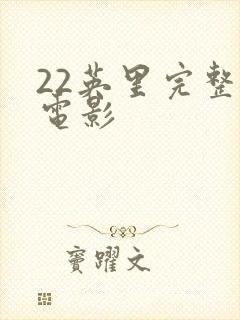 22英里完整
电影
窦躍文